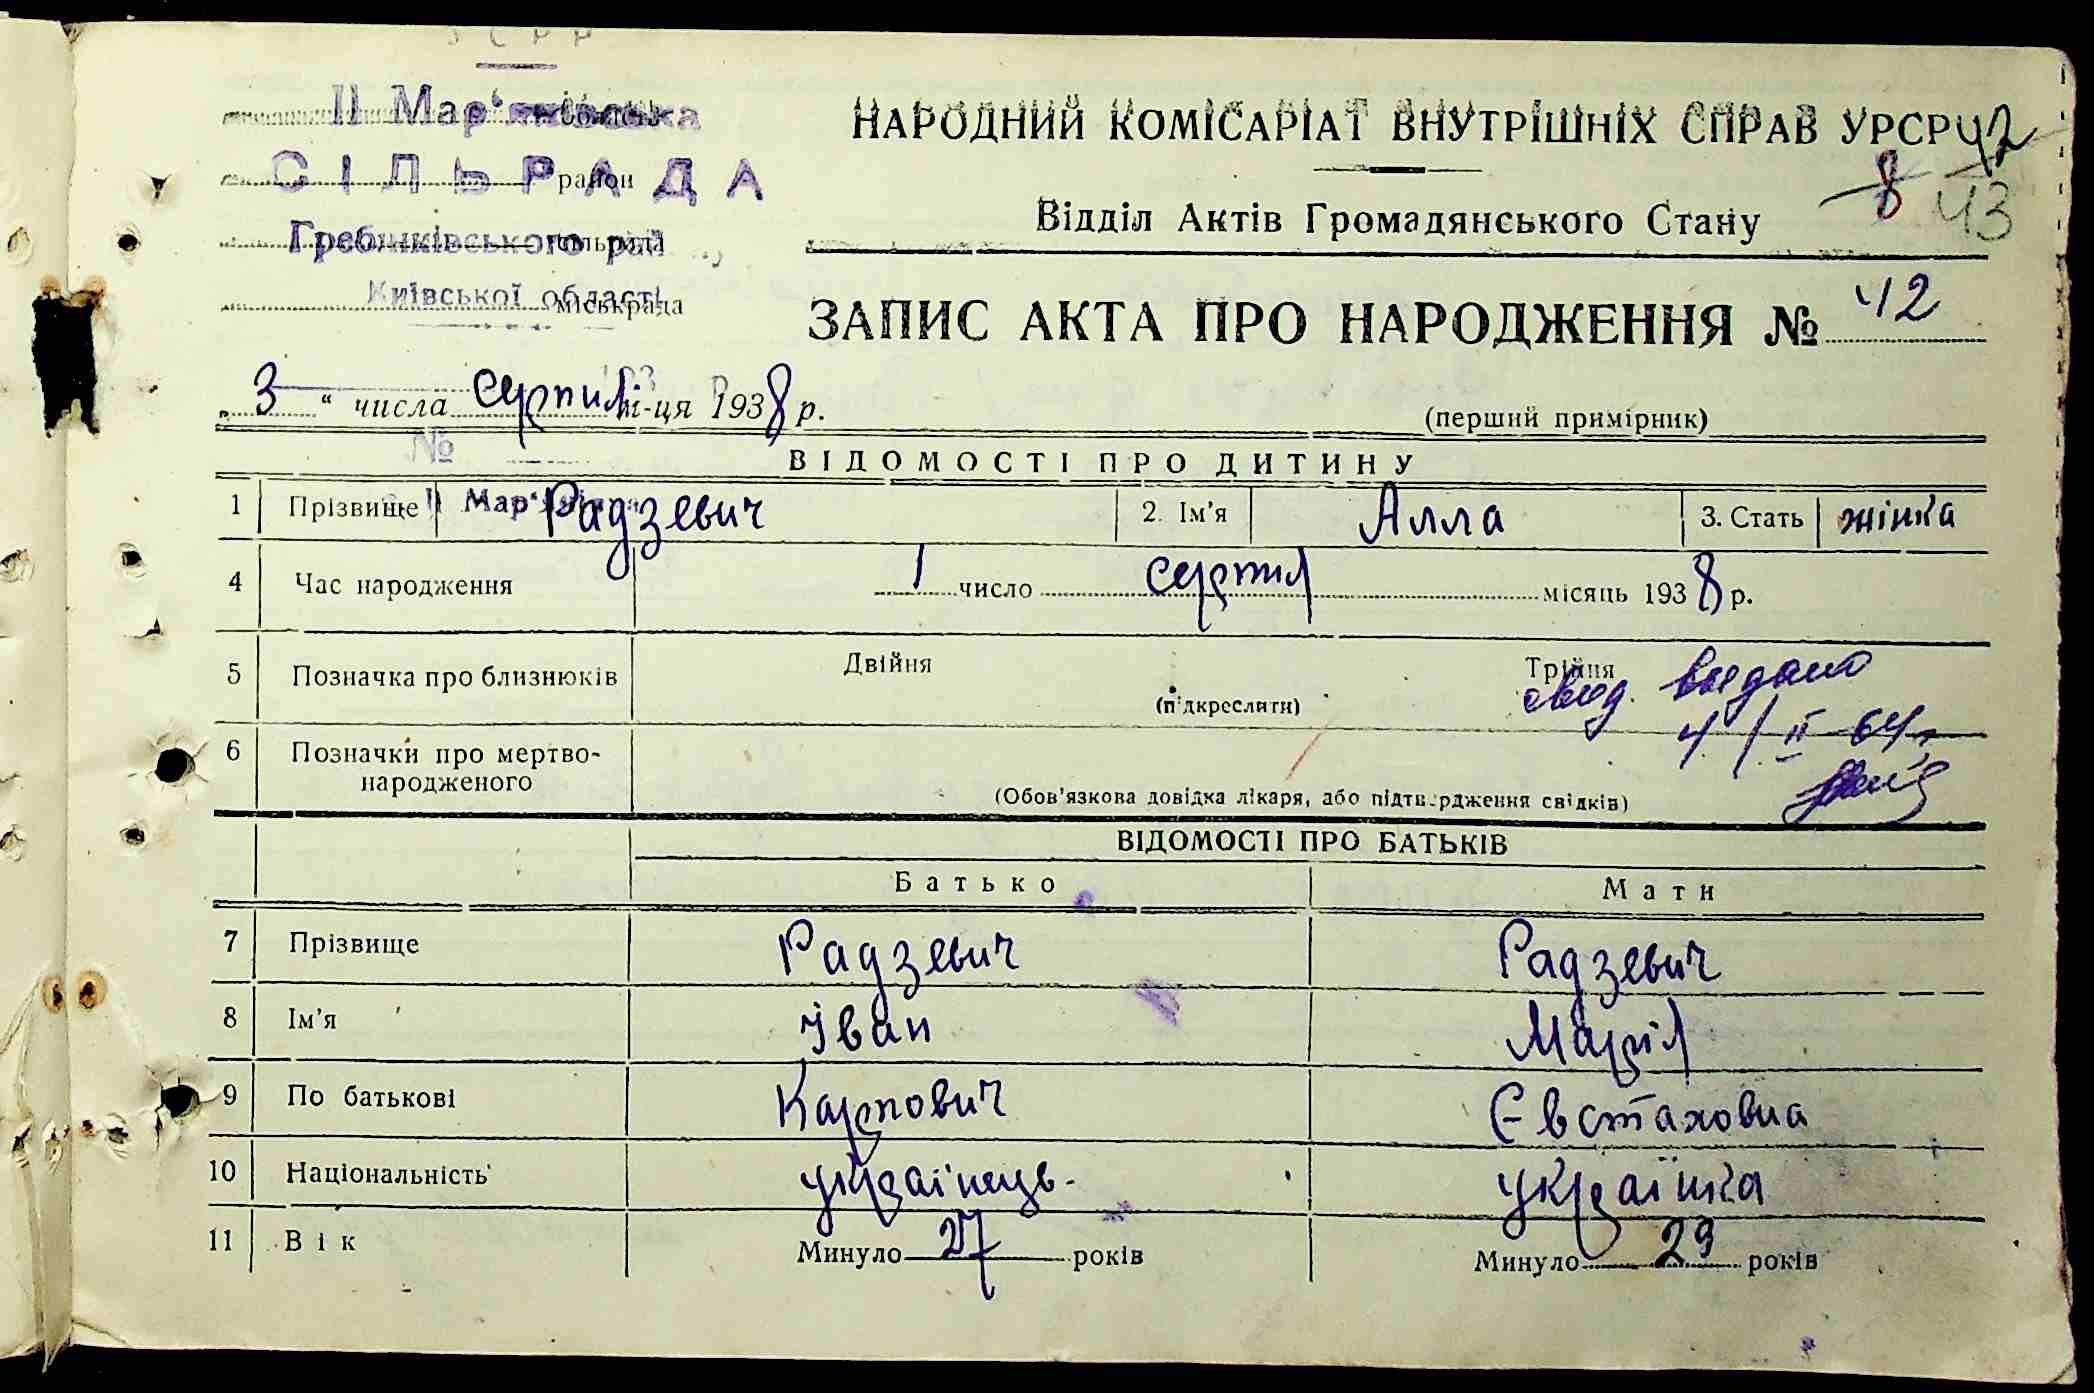 УСРР
ІІ Мар'янівська область
СІЛЬРАДА район
Гребінківського рай сільрада
Київської області міськрада
НАРОДНИЙ КОМІСАРІАТ ВНУТРІШНІХ СПРАВ УРСР 42
8 43
Відділ Актів Громадянського Стану
ЗАПИС АКТА ПРО НАРОДЖЕННЯ № 42
„ 3 “ числа серпня м-ця 1938 р.
(перший примірник)
№
ВІДОМОСТІ ПРО ДИТИНУ
1 Прізвище Радзевич 2. Ім'я Алла 3. Стать жінка
4 Час народження 1 число серпня місяць 1938 р.
5 Позначка про близнюків Двійня (підкреслити) Трійня
свід. видано
4/ІІ 64 г.
6 Позначки про мертвонародженого
(Обов'язкова довідка лікаря, або підтвердження свідків)
ВІДОМОСТІ ПРО БАТЬКІВ
Батько Мати
7 Прізвище Радзевич Радзевич
8 Ім'я Іван Марія
9 По батькові Карпович Євстаховна
10 Національність українець українка
11 Вік Минуло 27 років Минуло 29 років